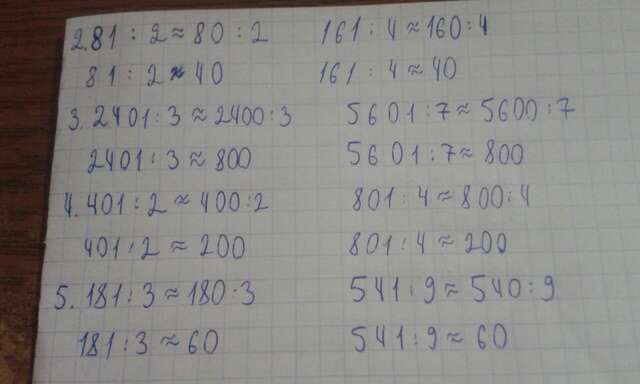 2. 81 : 2 ≈ 80 : 2
81 : 2 ≈ 40
3. 2401 : 3 ≈ 2400 : 3
2401 : 3 ≈ 800
4. 401 : 2 ≈ 400 : 2
401 : 2 ≈ 200
5. 181 : 3 ≈ 180 : 3
181 : 3 ≈ 60
161 : 4 ≈ 160 : 4
161 : 4 ≈ 40
5601 : 7 ≈ 5600 : 7
5601 : 7 ≈ 800
801 : 4 ≈ 800 : 4
801 : 4 ≈ 200
541 : 9 ≈ 540 : 9
541 : 9 ≈ 60